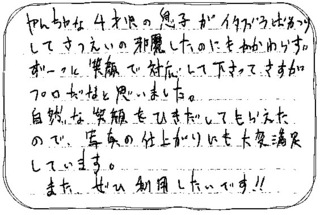 やんちゃな4才児の息子がイタズラばかり
してさつえいの邪魔したのにもかかわらず。
ずーっと笑顔で対応して下さってさすが
プロだなと思いました。
自然な笑顔をひきだしてもらえた
ので、写真の仕上がりにも大変満足
しています。
また ぜひ利用したいです!!